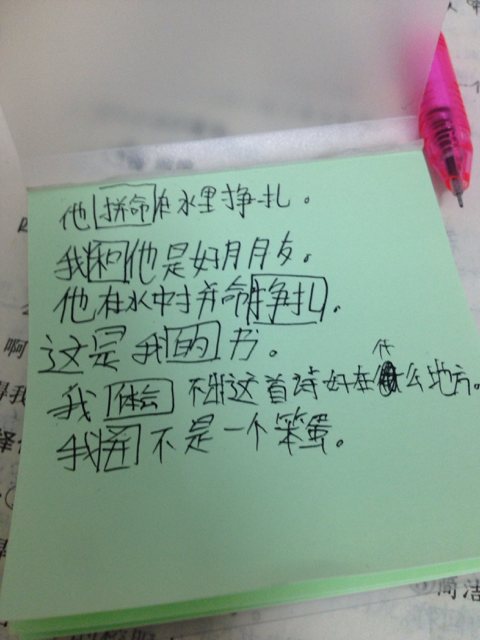 他拼命在水里挣扎。
我和他是好朋友。
他在水中拼命挣扎。
这是我的书。
我体会不出这首诗好在什么地方。
我并不是一个笨蛋。